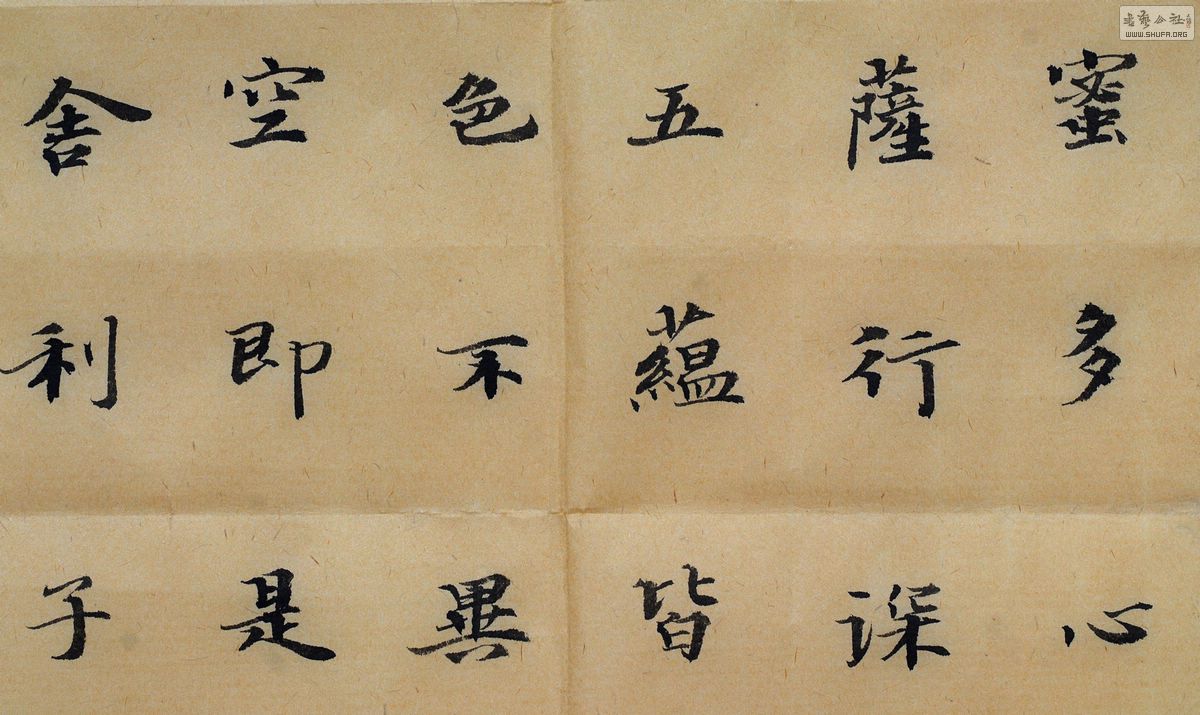 蜜多心
薩行深
五蘊皆
色不異
空即是
舍利子
WWW.SHUFA.ORG